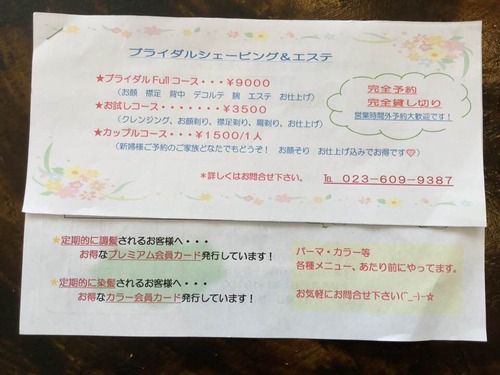 ブライダルシェービング＆エステ
★ブライダルFullコース・・・￥9000
（お顔　襟足　背中　デコルテ　腕　エステ　お仕上げ）
★お試しコース・・・・・・・￥3500
（クレンジング、お顔剃り、襟足剃り、肩剃り、お仕上げ）
★カップルコース・・・￥1500/1人
（新婦様ご予約のご家族どなたでもどうぞ！　お顔そり　お仕上げ込みでお得です♡）
完全予約
完全貸し切り
営業時間外予約大歓迎です！
＊詳しくはお問合せ下さい。
℡　023-609-9387
★定期的に調髪されるお客様へ・・・
お得なプレミアム会員カード発行しています！
★定期的に染髪されるお客様へ・・・
お得なカラー会員カード発行しています！
パーマ・カラー等
各種メニュー、あたり前にやってます。
お気軽にお問合せ下さい(^_-)-☆